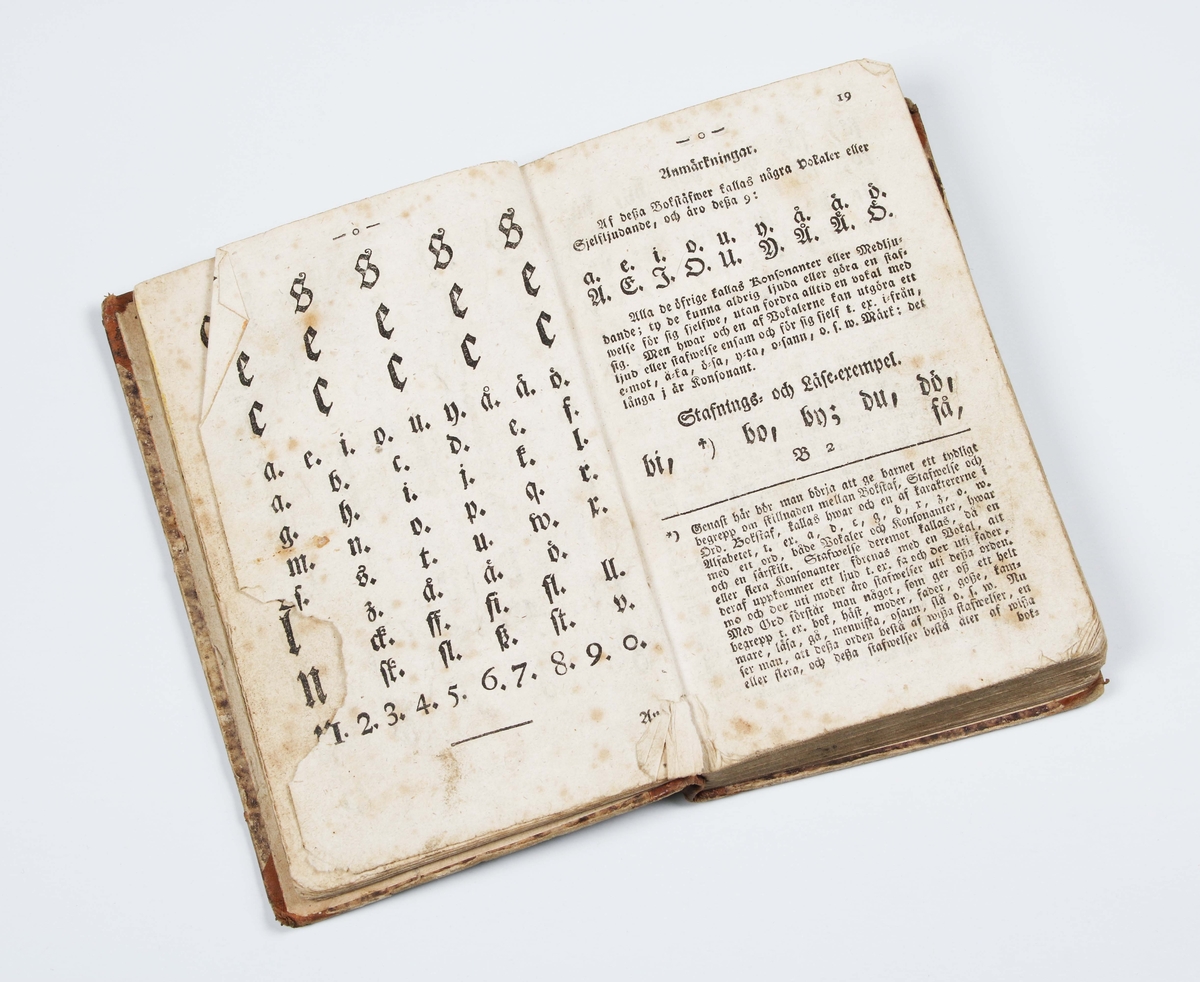 — o —
S S S S
e e e e e
c c c c c
a. e. i. o. u. y. å. ä. ö.
a. b. c. d. e. f.
g. h. i. j. k. l.
m. n. o. p. q. r.
ſ. s. t. u. w. x.
z. å. ä. ö.
ck. ff. fi. fl. ll.
ſk. ſl. ß. ſt. v.
1. 2. 3. 4. 5. 6. 7. 8. 9. 0.
19
— o —
Anmärkningar.
Af deßa Bokſtäfwer kallas några Vokaler eller
Sjelfljudande, och äro deßa 9:
a. e. i. o. u. y. å. ä. ö.
A. E. I. O. U. Y. Å. Ä. Ö.
Alla de öfrige kallas Konſonanter eller Medlju-
dande; ty de kunna aldrig ljuda eller göra en ſtaf-
welſe för ſig ſjelfwe, utan fordra alltid en vokal med
ſig. Men hwar och en af Vokalerne kan utgöra ett
ljud eller ſtafwelſe enſam och för ſig ſjelf t. ex. i-från,
e-mot, ä-ka, ö-ſa, y-ta, o-ſann, o. ſ. w. Märk: det
långa j är Konſonant.
Stafnings- och Läſe-exempel.
bi, *) bo, by; du, dö,
få,
B 2
*) Genaſt här bör man börja att ge barnet ett tydligt
begrepp om ſkillnaden mellan Bokſtaf, Stafwelſe och
Ord. Bokſtaf, kallas hwar och en af karaktererne i
Alfabetet, t. ex. a, b, c, g, h, r, z, o. w.
med ett ord, både Vokaler och Konſonanter, hwar
och en ſärſkilt. Stafwelſe deremot kallas, då en
eller flera Konſonanter förenas med en Vokal, att
deraf uppkommer ett ljud t. ex. fa och der uti fader,
mo och der uti moder äro ſtafwelſer uti deßa orden.
Med Ord förſtår man något, ſom ger oß ett helt
begrepp t. ex. bok, häſt, moder, fader, goße, kam-
mare, läſa, gå, menniſka, oſann, ſlå o. ſ. w. Nu
ſer man, att deßa orden beſtå af wißa ſtafwelſer, en
eller flera, och deßa ſtafwelſer beſtå åter af wißa
bok-